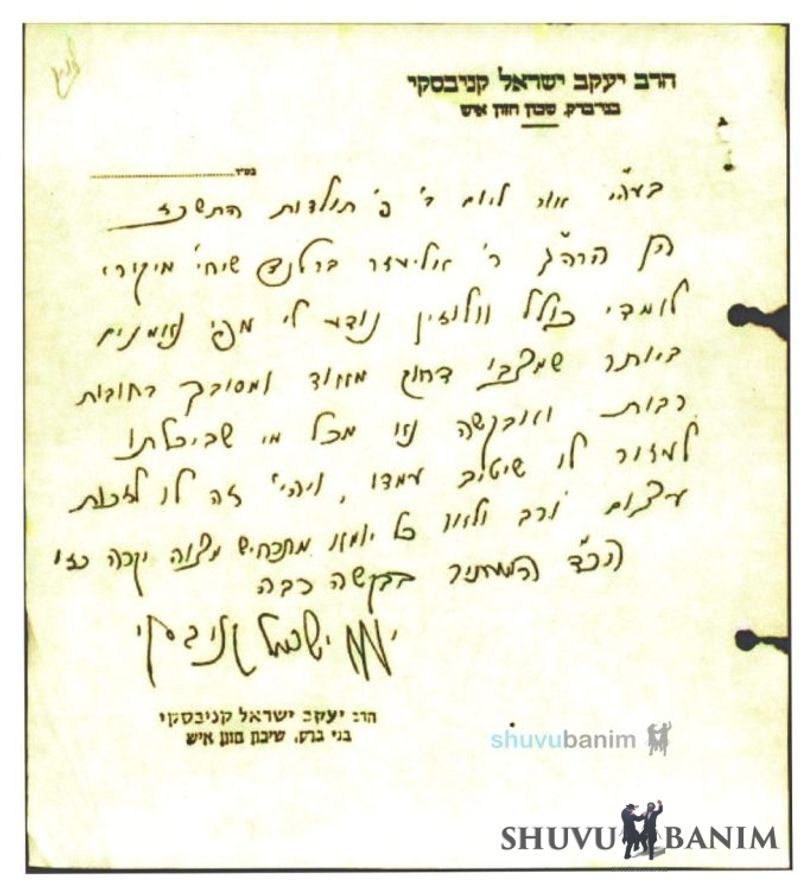 הרב יעקב ישראל קניבסקי
בני ברק, שכון חזון איש
בס״ד
בעה״י אור ליום ד' פ' תולדות התשכז
הן הרה״ג ר' אליעזר ברלנד שיחי' מיקירי
לומדי כולל וולוזין נודע לי מפי נאמנים
ביותר שמצבו דחוק מאוד ומסובך בחובות
רבות ואבקשה נא מכל מי שביכלתו
לעזור לו שיטיב עמדו, ויהי' זה לו לזכות
עצום ורב ולאו כל יומא מתרחיש מצוה יקרה כזו
הכו״ח בבקשה רבה
יעקב ישראל קניבסקי
הרב יעקב ישראל קניבסקי
בני ברק, שיכון חזון איש
shuvubanim
SHUVU BANIM